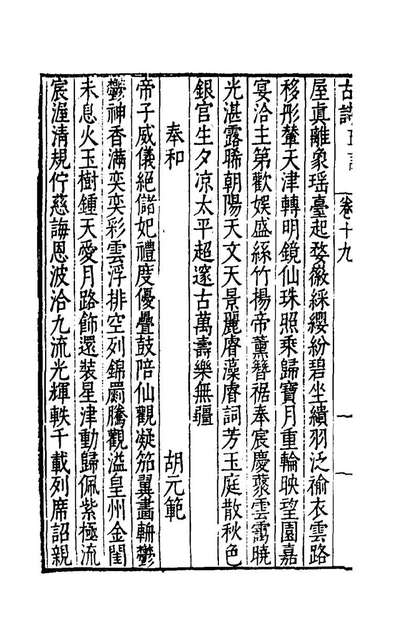 古詩□□ 卷十九 一
屋眞離象瑤臺起婺徽綵纓紛碧坐繢羽泛褕衣雲路
移彤輦天津轉明鏡仙珠照乘歸寶月重輪映望園嘉
宴洽主第歡娛盛絲竹揚帝薰簪裾奉宸慶叢雲靄曉
光湛露晞朝陽天文天景麗睿藻睿詞芳玉庭散秋色
銀宫生夕凉太平超邃古萬壽樂無疆
奉和 胡元範
帝子威儀絕儲妃禮度優疊鼓陪仙觀凝笳翼畫輈鬱
鬱神香滿奕奕彩雲浮排空列錦罽騰觀溢皇州金閨
未息火玉樹鍾天愛月路飾還裝星津動歸佩紫極流
宸渥清規佇慈誨恩波洽九流光輝軼千載列席詔親